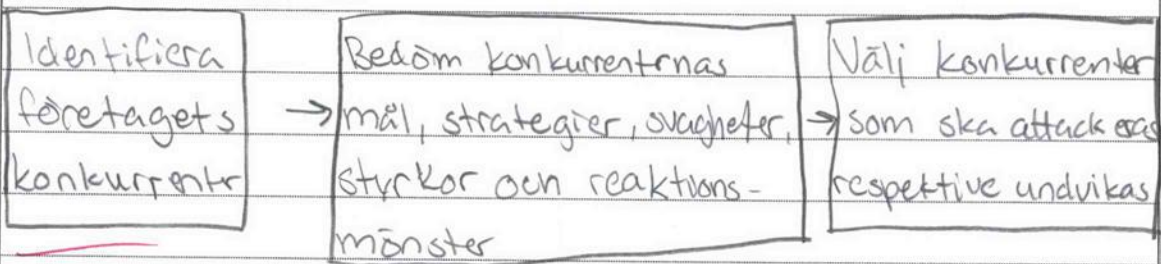 Identifiera
företagets
konkurrentr
→
Bedöm konkurrentrnas
mål, strategier, svagheter,
styrkor och reaktions-
mönster
→
Välj konkurrenter
som ska attackeras
respektive undvikas